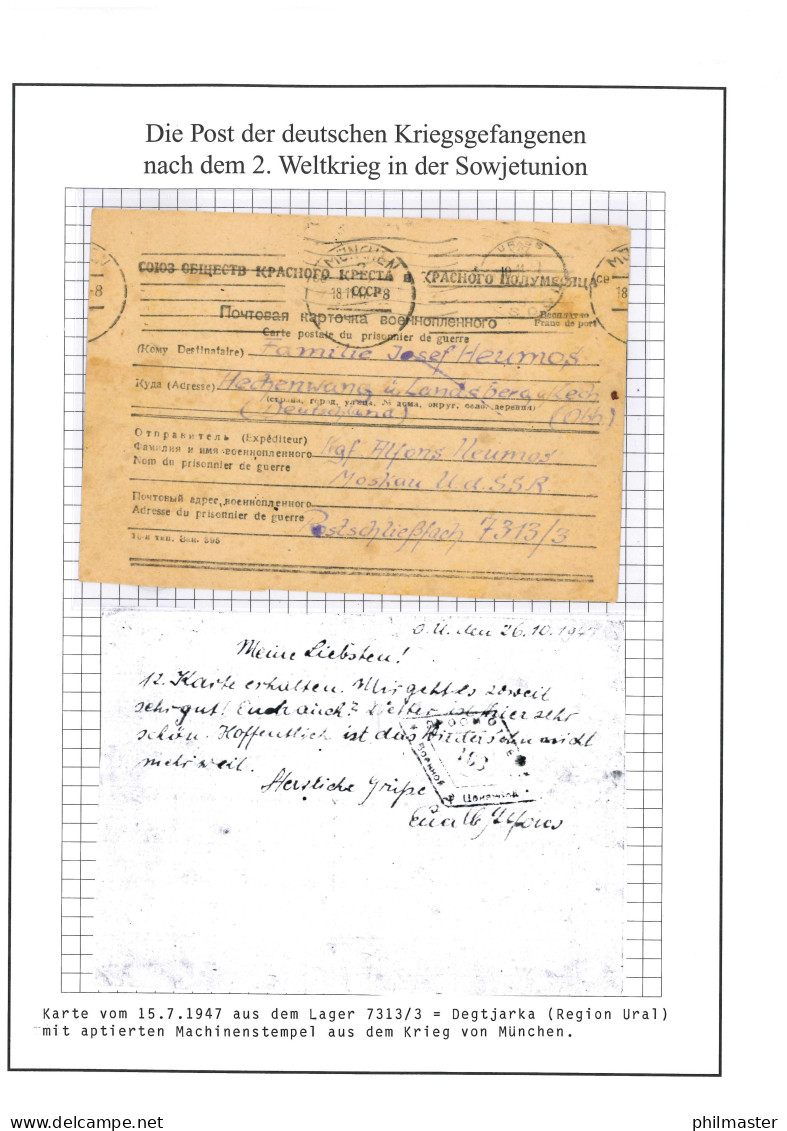 Die Post der deutschen Kriegsgefangenen
nach dem 2. Weltkrieg in der Sowjetunion
MÜNCHEN
18.11.47-8
СОЮЗ ОБЩЕСТВ КРАСНОГО КРЕСТА и КРАСНОГО ПОЛУМЕСЯЦА
СССР
Почтовая карточка военнопленного
Бесплатно
Carte postale du prisonnier de guerre
Franc de port
(Кому Destinataire) Familie Josef Heumos
Куда (Adresse) Hechenwang ü. Landsberg a. Lech
(страна, город, улица, № дома, округ, село, деревня)
(Deutschland) (Obb)
Отправитель (Expéditeur)
Фамилия и имя военнопленного Kgf Alfons Heumos
Nom du prisonnier de guerre
Moskau U.d.S.S.R
Почтовый адрес военнопленного
Adresse du prisonnier de guerre Postschließfach 7313/3
16-я тип. Зак. 395
O.U. den 26.10.1947
Meine Liebsten!
12. Karte erhalten. Mir geht es soweit
sehr gut! Euch auch? Wetter ist hier sehr
schön. Hoffentlich ist das Wiedersehn nicht
mehr weit.
Herzliche Grüße
Euer Alfons
Военной
Цензурой
Karte vom 15.7.1947 aus dem Lager 7313/3 = Degtjarka (Region Ural)
mit aptierten Machinenstempel aus dem Krieg von München.
philmaster